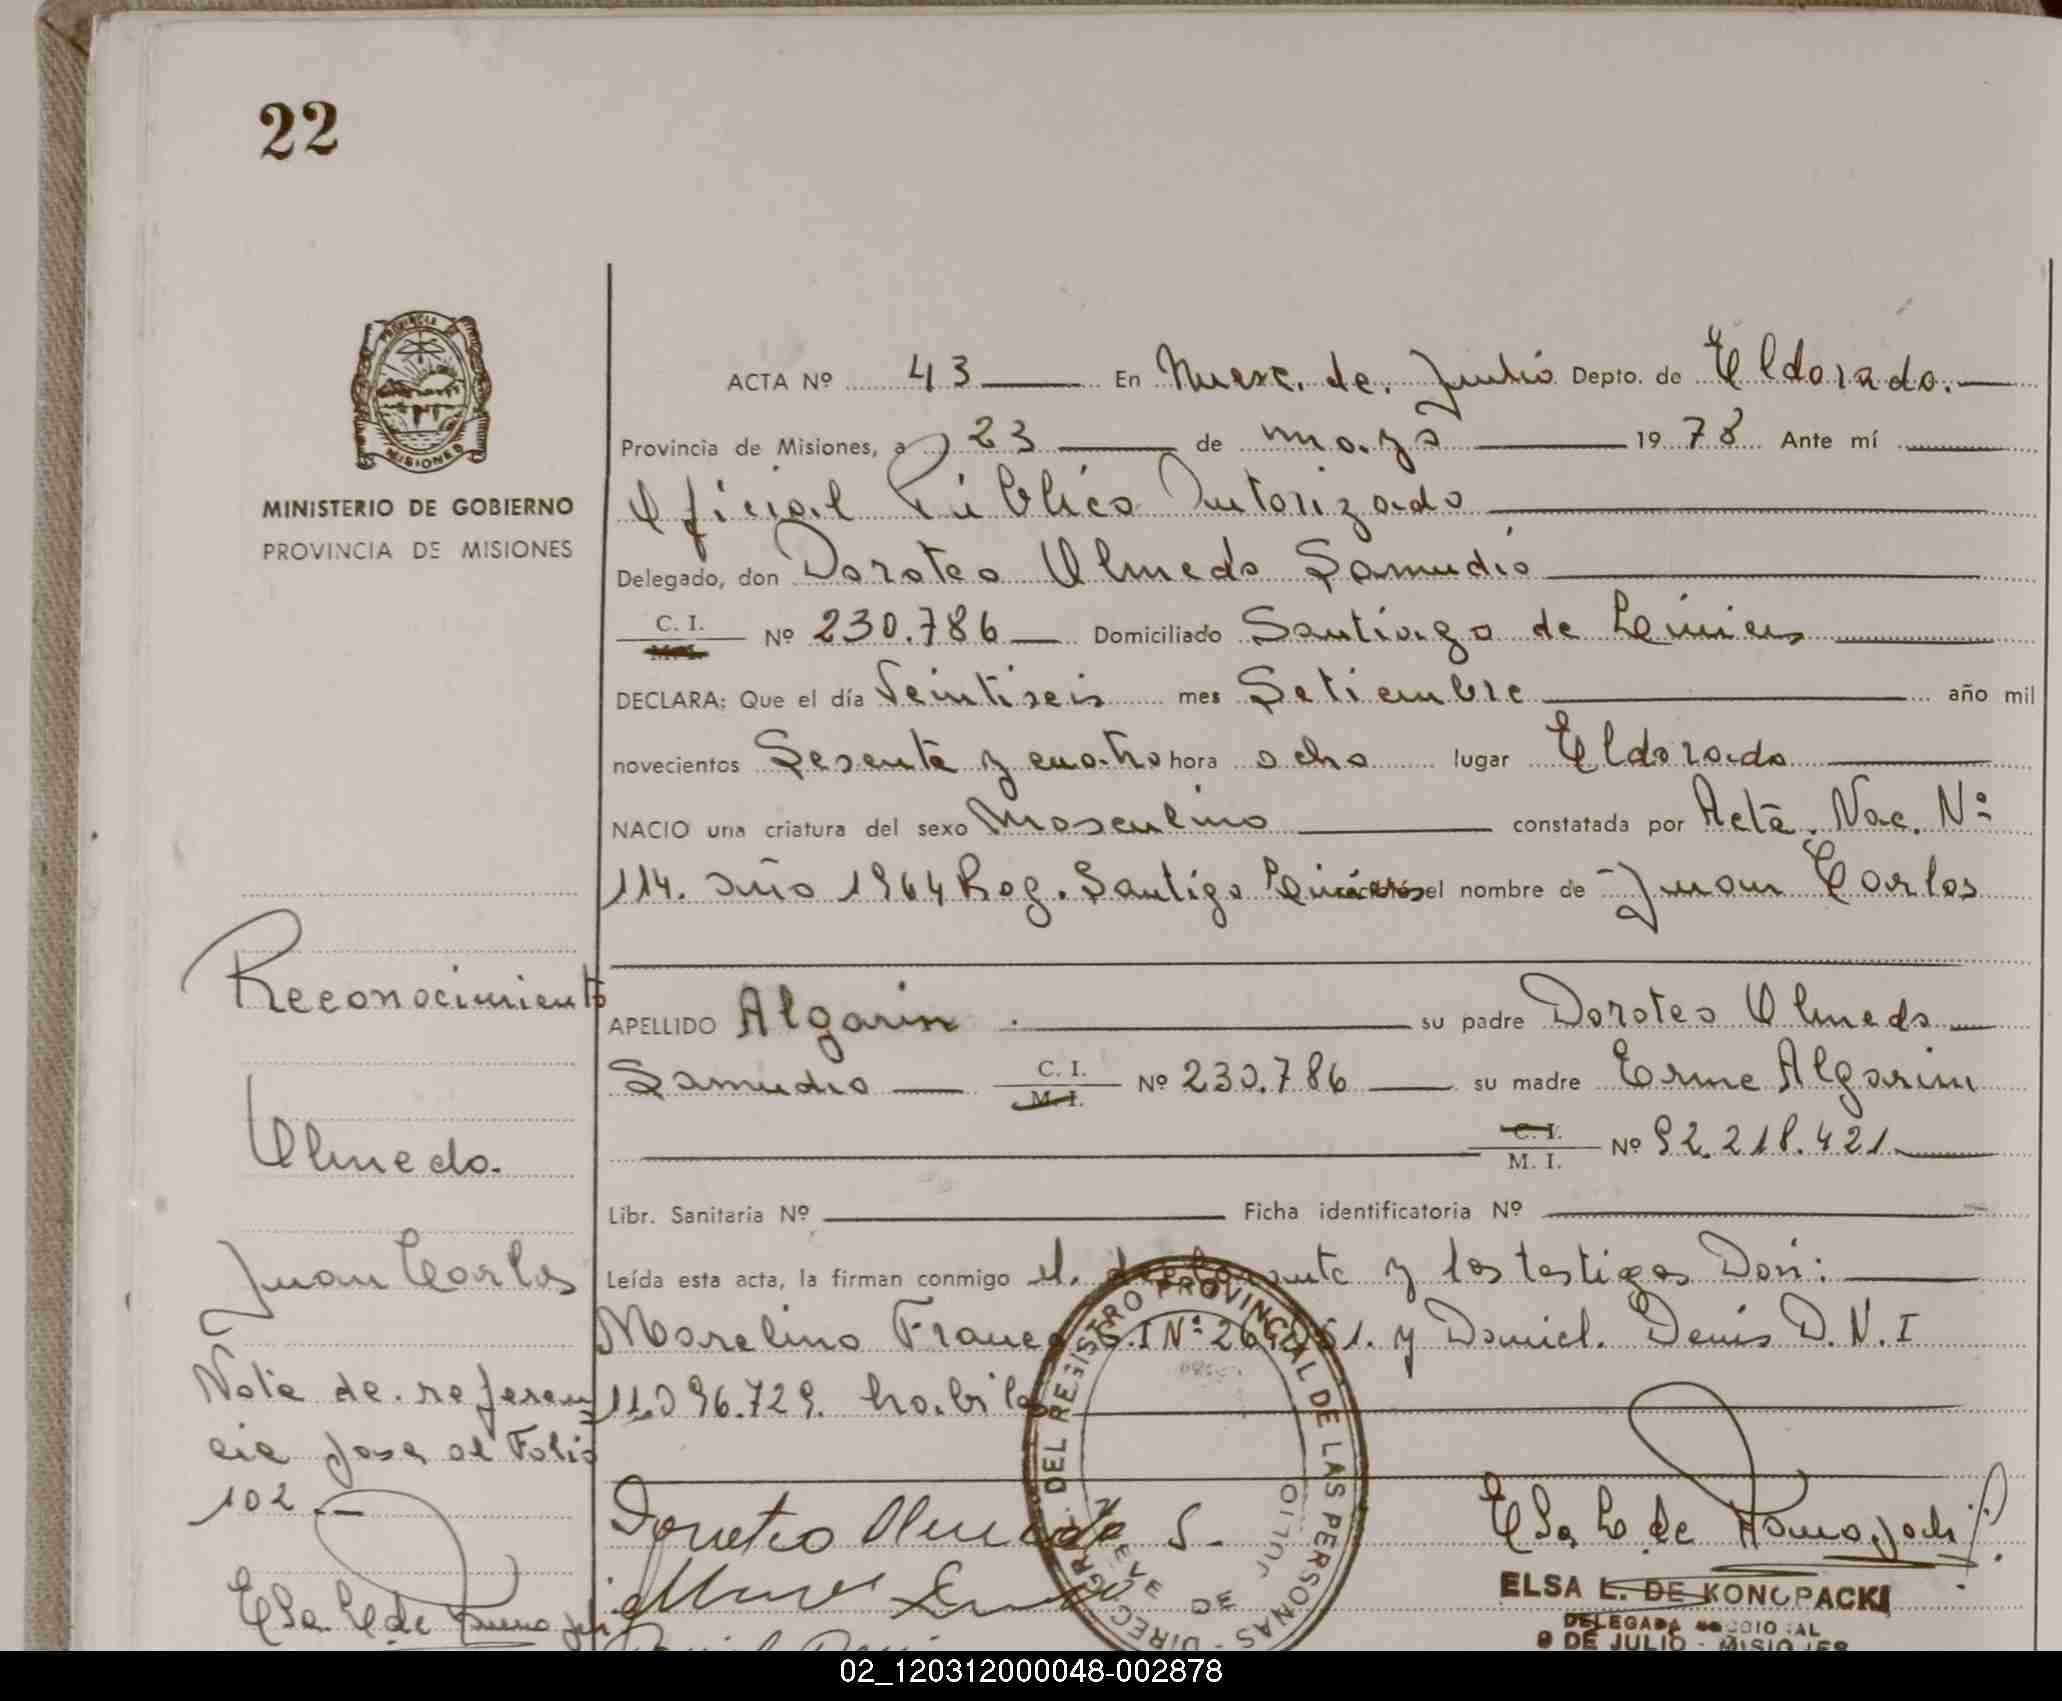 22
PROVINCIA
MISIONES
MINISTERIO DE GOBIERNO
PROVINCIA DE MISIONES
ACTA Nº 43 En Nueve de Julio Depto. de Eldorado.
Provincia de Misiones, a 23 de mayo 1978 Ante mí
Oficial Público Autorizado
Delegado, don Doroteo Olmedo Samudio
C. I.
M. I. Nº 230.786 Domiciliado Santiago de Liniers
DECLARA: Que el día Veintiseis mes Setiembre año mil
novecientos Sesenta y cuatro hora ocho lugar Eldorado
NACIO una criatura del sexo Masculino constatada por Acta. Nac. Nº
114. año 1964 Reg. Santigo Liniers el nombre de Juan Carlos
Reconocimiento
APELLIDO Algarin su padre Doroteo Olmedo
Samudio C. I. M. I. Nº 230.786 su madre Erme Algarin
C. I.
M. I. Nº 92.218.421
Olmedo.
Libr. Sanitaria Nº Ficha identificatoria Nº
Juan Carlos
Leída esta acta, la firman conmigo el declarante y los testigos Don:
Marelino Franco C.I Nº 26 51. y Daniel. Denis D.N.I
11.096.729. habiles
Nota de referen
cia pasa al Folio
102
Doroteo Olmedo S.
Elsa L. de Konopacki
Elsa L. de Konopacki
DIREC. GRAL. DEL REGISTRO PROVINCIAL DE LAS PERSONAS
NUEVE DE JULIO
ELSA L. DE KONOPACKI
DELEGADA
9 DE JULIO - MISIONES
02_120312000048-002878